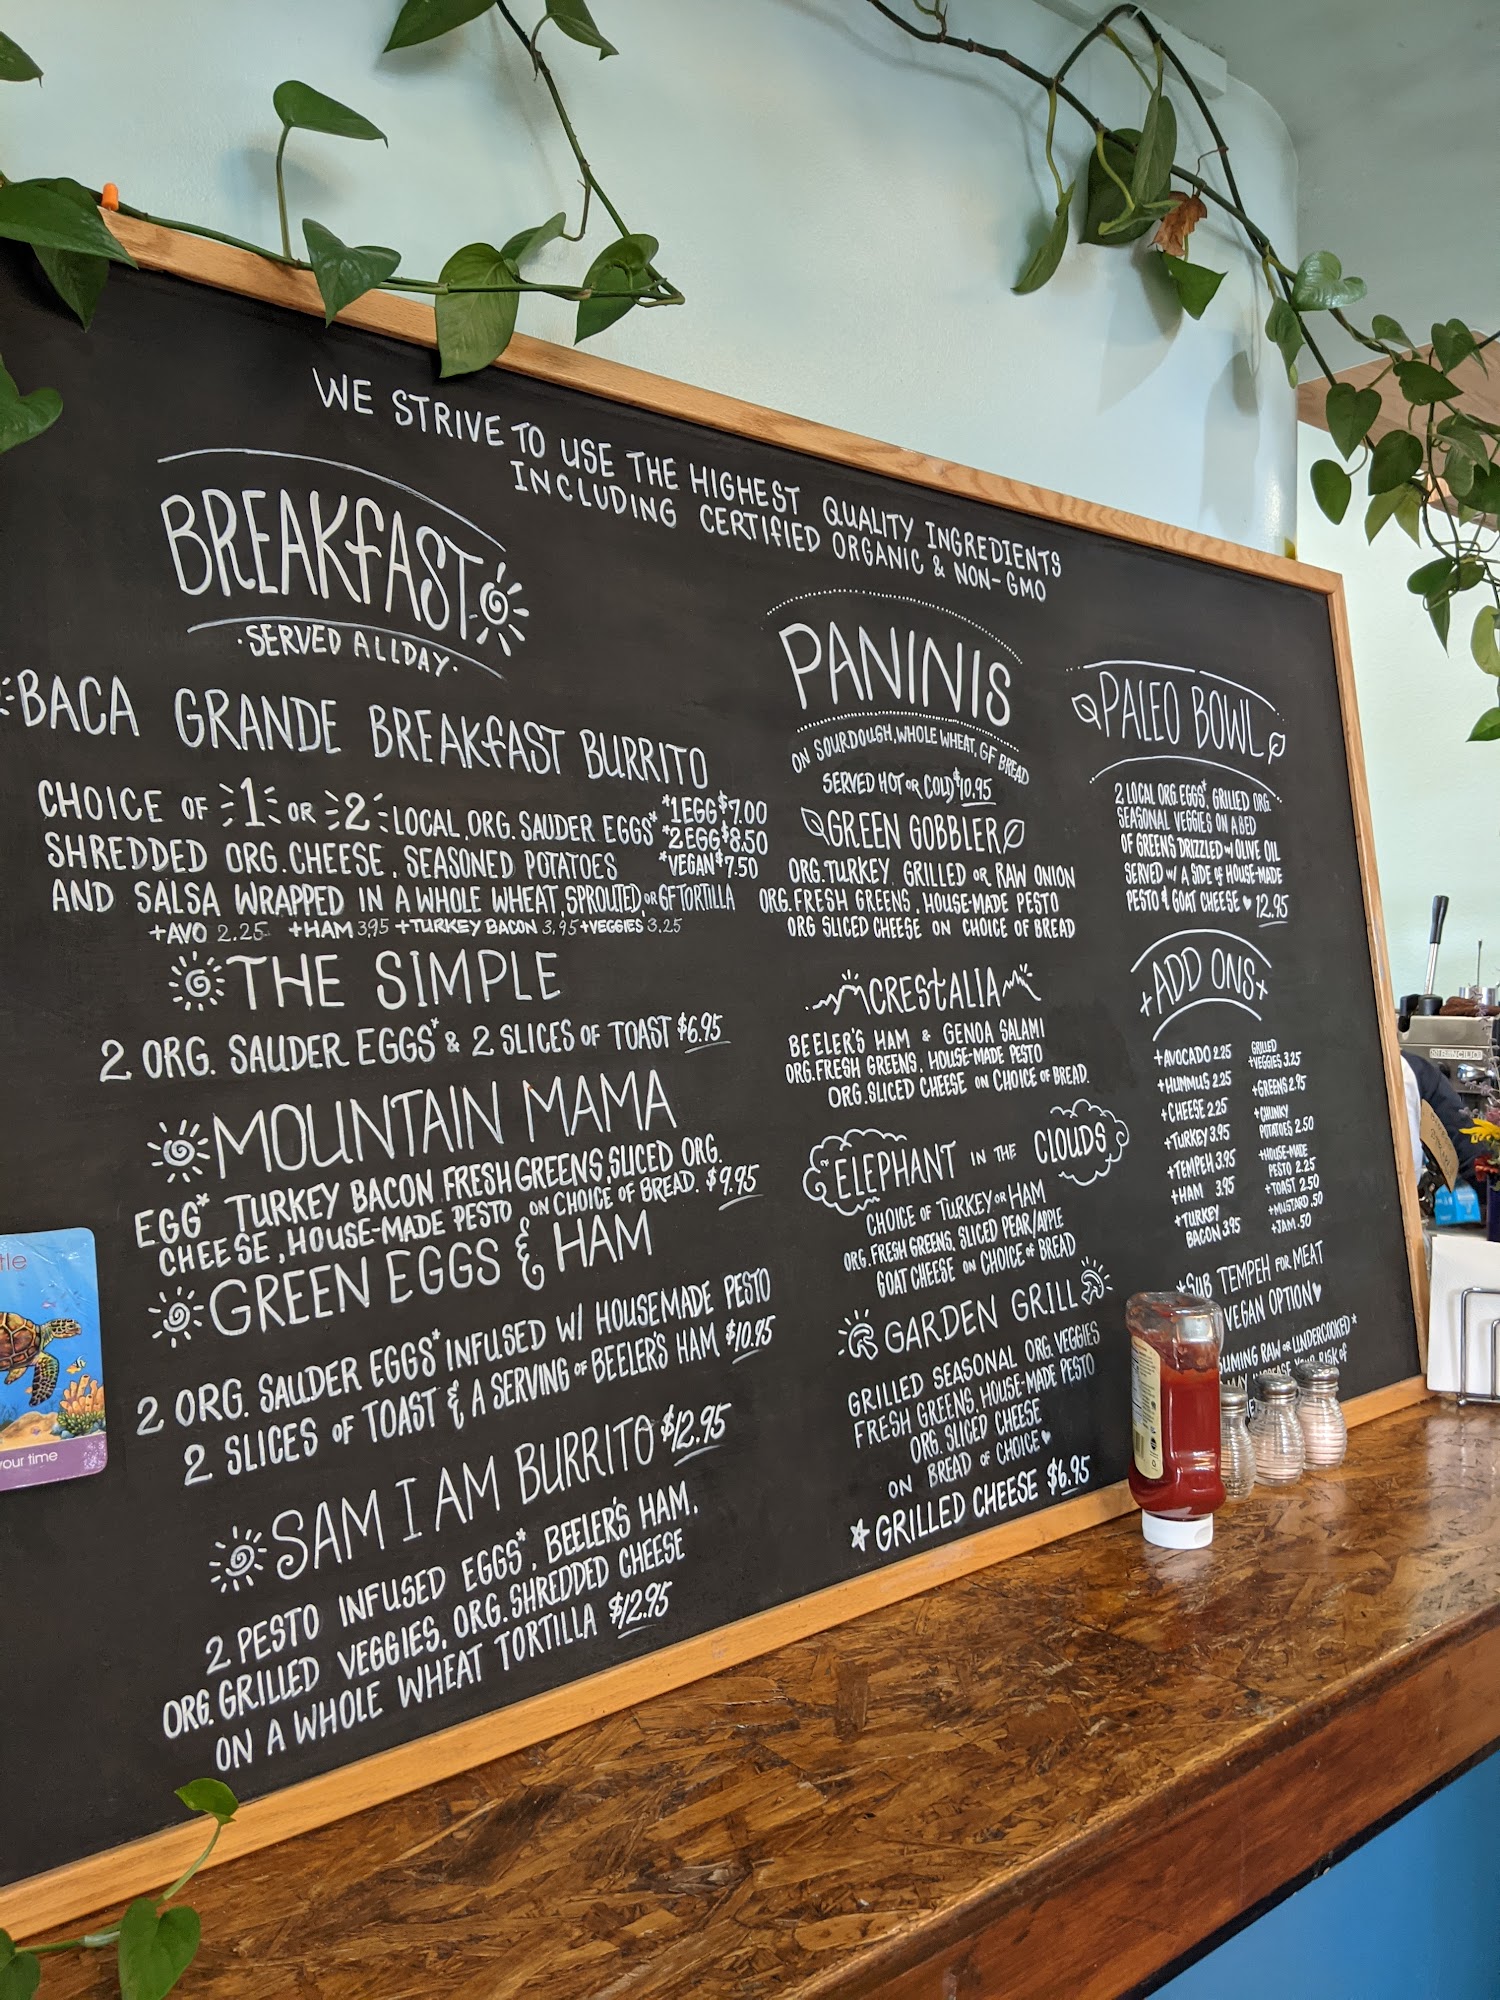 WE STRIVE TO USE THE HIGHEST QUALITY INGREDIENTS
INCLUDING CERTIFIED ORGANIC & NON-GMO
BREAKFAST
·SERVED ALL DAY·
BACA GRANDE BREAKFAST BURRITO
CHOICE OF 1 OR 2 LOCAL, ORG. SAUDER EGGS* *1 EGG $7.00
*2 EGG $8.50
SHREDDED ORG. CHEESE, SEASONED POTATOES *VEGAN $7.50
AND SALSA WRAPPED IN A WHOLE WHEAT, SPROUTED, OR GF TORTILLA
+AVO 2.25 +HAM 3.95 +TURKEY BACON 3.95 +VEGGIES 3.25
THE SIMPLE
2 ORG. SAUDER EGGS* & 2 SLICES OF TOAST $6.95
MOUNTAIN MAMA
EGG* TURKEY BACON FRESH GREENS, SLICED ORG.
CHEESE, HOUSE-MADE PESTO ON CHOICE OF BREAD. $9.95
GREEN EGGS & HAM
2 ORG. SAUDER EGGS* INFUSED W/ HOUSEMADE PESTO
2 SLICES OF TOAST & A SERVING OF BEELER'S HAM $10.95
SAM I AM BURRITO $12.95
2 PESTO INFUSED EGGS*, BEELER'S HAM,
ORG. GRILLED VEGGIES, ORG. SHREDDED CHEESE
ON A WHOLE WHEAT TORTILLA $12.95
PANINIS
ON SOURDOUGH, WHOLE WHEAT, GF BREAD
SERVED HOT OR COLD $10.95
GREEN GOBBLER
ORG. TURKEY, GRILLED OR RAW ONION
ORG. FRESH GREENS, HOUSE-MADE PESTO
ORG SLICED CHEESE ON CHOICE OF BREAD
CRESTALIA
BEELER'S HAM & GENOA SALAMI
ORG. FRESH GREENS, HOUSE-MADE PESTO
ORG. SLICED CHEESE ON CHOICE OF BREAD.
ELEPHANT IN THE CLOUDS
CHOICE OF TURKEY OR HAM
ORG. FRESH GREENS, SLICED PEAR/APPLE
GOAT CHEESE ON CHOICE OF BREAD
GARDEN GRILL
GRILLED SEASONAL ORG. VEGGIES
FRESH GREENS, HOUSE-MADE PESTO
ORG. SLICED CHEESE
ON BREAD OF CHOICE
GRILLED CHEESE $6.95
PALEO BOWL
2 LOCAL ORG EGGS*, GRILLED ORG.
SEASONAL VEGGIES ON A BED
OF GREENS DRIZZLED W/ OLIVE OIL
SERVED W/ A SIDE OF HOUSE-MADE
PESTO & GOAT CHEESE 12.95
+ADD ONS+
+AVOCADO 2.25
+HUMMUS 2.25
+CHEESE 2.25
+TURKEY 3.95
+TEMPEH 3.95
+HAM 3.95
+TURKEY
BACON 3.95
GRILLED
+VEGGIES 3.25
+GREENS 2.95
+CHUNKY
POTATOES 2.50
+HOUSE-MADE
PESTO 2.25
+TOAST 2.50
+MUSTARD .50
+JAM .50
*SUB TEMPEH FOR MEAT
VEGAN OPTION
SUMING RAW OR UNDERCOOKED*
RISK OF
tle
your time